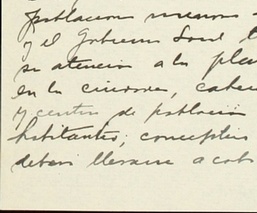 poblacion menos
y el Gobierno Local
su atencion a la pla
en la ciudad, cabe
y centro de poblacion
habitantes; conceptúo
deberá llevarse a cab